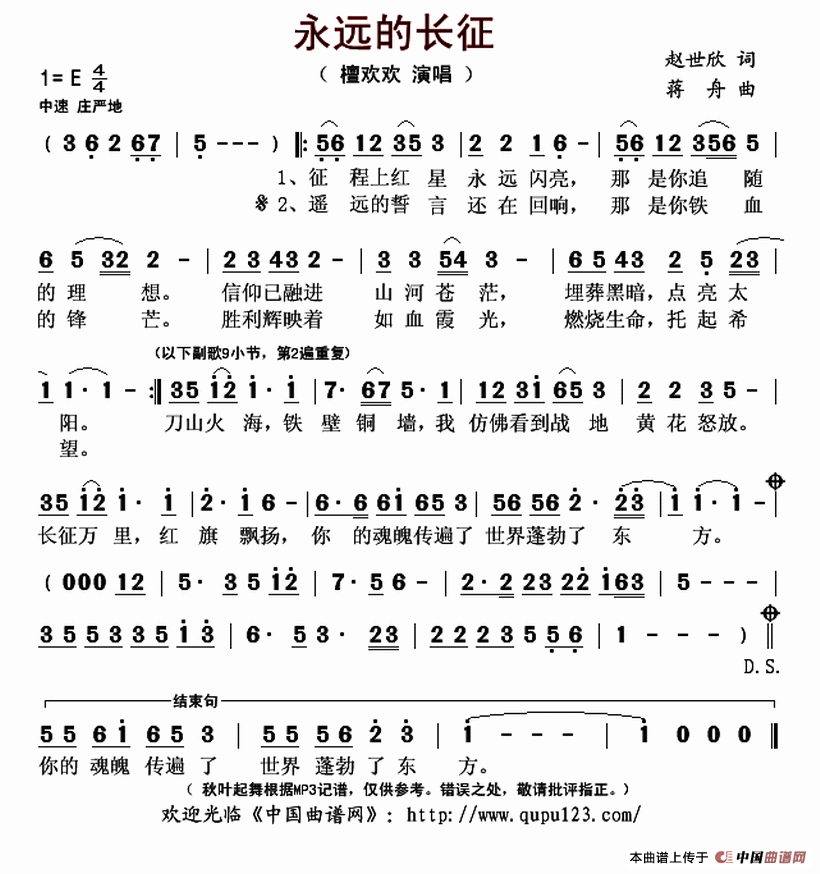 永远的长征
赵世欣 词
1= E 4/4
（ 檀欢欢 演唱 ）
蒋 舟 曲
中速 庄严地
( 3 6 2 67 | 5 - - - ) ‖: 56 12 35 3 | 2 2 1 6 - | 56 12 356 5 |
1、征 程上红 星 永 远 闪亮， 那 是你追 随
※ 2、遥 远的誓 言 还 在 回响， 那 是你铁 血
6 5 32 2 - | 2 3 43 2 - | 3 3 54 3 - | 6 5 43 2 5 23 |
的 理 想。 信仰已融进 山 河 苍 茫， 埋葬黑暗，点 亮 太
的 锋 芒。 胜利辉映着 如 血 霞 光， 燃烧生命，托 起 希
（以下副歌9小节，第2遍重复）
1 1· 1 - :‖ 35 12 1· 1 | 7· 67 5· 1 | 12 31 65 3 | 2 2 3 5 - |
阳。 刀山火 海，铁 壁 铜 墙，我 仿佛看到战 地 黄 花 怒放。
望。
35 12 1· 1 | 2· 1 6 - | 6· 6 61 65 3 | 56 56 2· 23 | 1 1· 1 - |
长征万 里，红 旗 飘扬， 你 的魂魄传遍了 世界蓬勃了 东 方。
( 000 12 | 5· 3 5 12 | 7· 5 6 - | 2· 2 23 22 163 | 5 - - - |
3 5 5 3 3 5 1 3 | 6· 5 3· 23 | 2 2 2 3 5 5 6 | 1 - - - ) ‖
D.S.
结束句
5 5 6 1 6 5 3 | 5 5 5 6 2 3 | 1 - - - | 1 0 0 0 ‖
你的 魂魄 传遍 了 世界 蓬勃 了 东 方。
（ 秋叶起舞根据MP3记谱，仅供参考。错误之处，敬请批评指正。）
欢迎光临《中国曲谱网》: http://www.qupu123.com/
本曲谱上传于 中国曲谱网